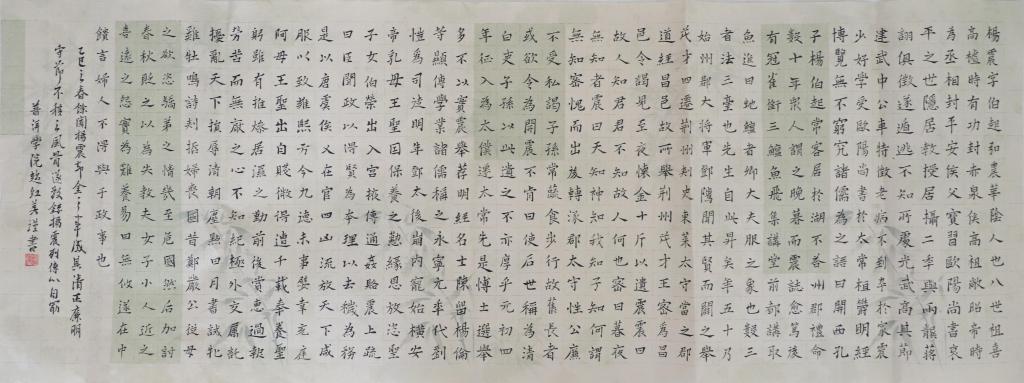 楊震字伯起弘農華陰人也八世祖喜
高祖時有功封赤泉侯高祖敞昭帝時
為丞相封平安侯父寶習歐陽尚書哀
平之世隱居教授居攝二年與兩龔蔣
詡俱徵遂遁逃不知所處光武高其節
建武中公車特徵老病不到卒於家震
少好學受歐陽尚書於太常桓郁明經
博覽無不窮究諸儒為之語曰關西孔
子楊伯起常客居於湖不荅州郡禮命
數十年衆人謂之晚暮而震誌愈篤後
有冠雀銜三鱣魚飛集講堂前都講取
魚進曰虵鱣者卿大夫服之象也數三
者法三臺也先生自此昇矣年五十乃
始州郡大將軍鄧騭聞其賢而闢之舉
茂才四遷荊州刺史東萊太守當之郡
道經昌邑故所舉荊州茂才王密為昌
邑令謁見至夜懷金十斤以遺震震曰
故人知君君不知故人何也密曰暮夜
無知者震曰天知神知我知子知何謂
無知密愧而出後轉涿郡太守性公廉
不受私謁子孫常蔬食步行故舊長者
或欲令為開震不肯曰使后世稱為清
白吏子孫以此遺之不亦厚乎元初四
年征入為太僕遷太常先是博士選舉
多不以實震舉薦明經名士陳留楊倫
等顯傳學業諸儒稱之永寧元年代劉
愷為司徒明年鄧太后崩內寵始橫安
帝乳母王聖因保養之勤緣恩放恣聖
子女伯榮出入宮掖傳通姦賂震上疏
曰臣聞政以得賢為本理以去穢為務
是以唐虞俊乂在官四凶流放天下咸
服以致雍熙方今九德未事嬖幸充庭
阿母王聖出自賤微得遭千載奉養聖
躬雖有推燥居濕之勤前後賞惠過報
勞苦而無厭之心不知紀極外交屬託
擾亂天下損辱清朝塵點日月書誡牝
雞牡鳴詩刺哲婦喪國昔鄭嚴公從母
之欲恣驕弟之情幾至危國然后加討
春秋貶之以為失教夫女子小人近之
喜遠之怨實為難養易曰無攸遂在中
饋言婦人不得與于政事也
乙巳之春余聞楊震卻金之事感其清正廉明
守節不移之風骨遂敬錄楊震列傳以自勵
普洱學院 紅 書